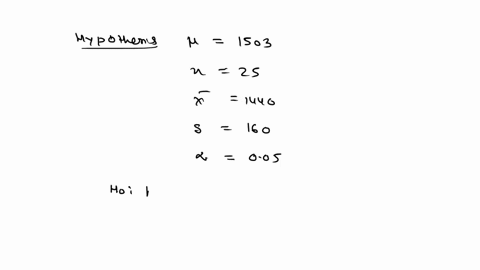 Hypothems μ = 1503
n = 25
x̄ = 1440
s = 160
α = 0.05
H0: |